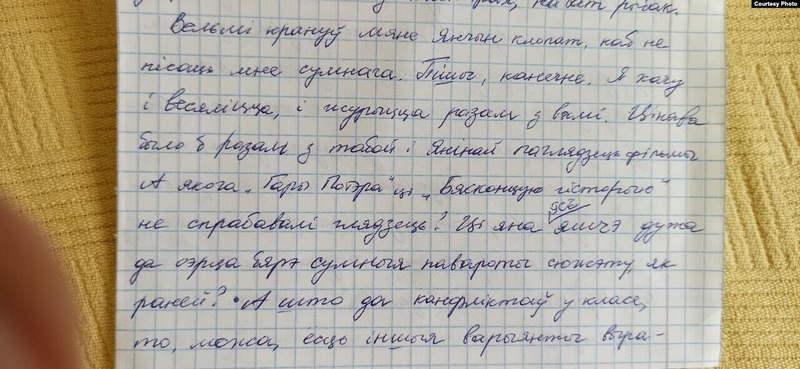 Courtesy Photo
рыбак.
Вельмі крануў мяне Янчын клопат, каб не
пісаць мне сумнага. Пішы, канечне. Я хачу
і весяліцца, і журыцца разам з вамі. Цікава
было б разам з табой і Янінай паглядзець фільмы
А якога „Гары Потэра" ці „Бясконцую гісторыю"
не спрабавалі глядзець? Ці яна яшчэ дужа
да сэрца бярэ сумныя павароты сюжэту, як
раней? А што да канфліктаў у класе,
то, можа, ёсць іншыя варыянты выра-